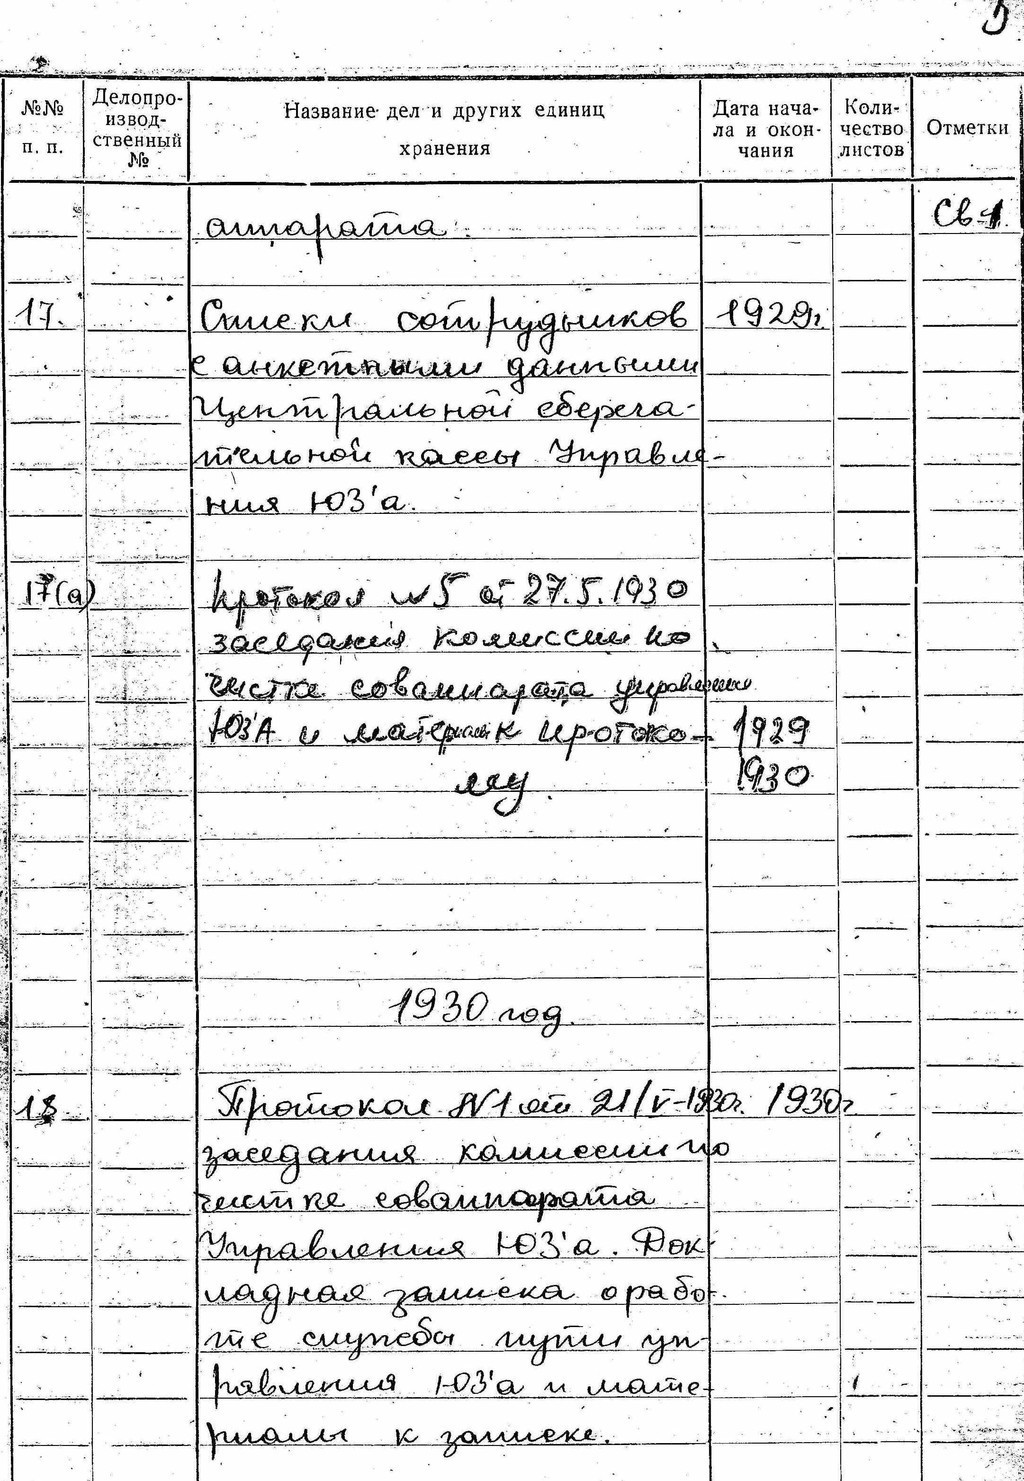 5
№№ п. п.
Делопро-
извод-
ственный
№
Название дел и других единиц
хранения
Дата нача-
ла и окон-
чания
Коли-
чество
листов
Отметки
аппарата. Св-1.
17. Списки сотрудников 1929г.
с анкетными данными
Центральной сберега-
тельной кассы Управле-
ния ЮЗ'а.
17(а) Протокол №5 от 27.5.1930
заседания комиссии по
чистке соваппарата управления
ЮЗ'А и матер. к протоко- 1929
лу. 1930
1930 год.
18 Протокол №1 от 21/V-1930г. 1930г
заседания комиссии по
чистке соваппарата
Управления ЮЗ'а. Док-
ладная записка о рабо-
те службы пути уп-
равления ЮЗ'а и мате-
риалы к записке.